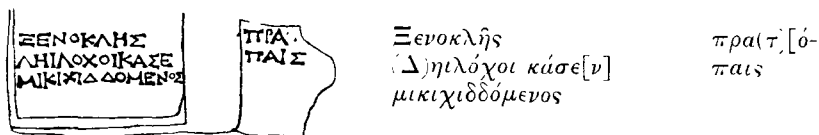 ΞΕΝΟΚΛΗΣ
ΛΗΙΛΟΧΟΙΚΑΣΕ
ΜΙΚΙΧΙΔΔΟΜΕΝΟΣ
ΠΡΑ·
ΠΑΙΣ
Ξενοκλῆς
(Δ)ηιλόχοι κάσε[ν]
μικιχιδδόμενος
πρα(τ)[ό-
παις